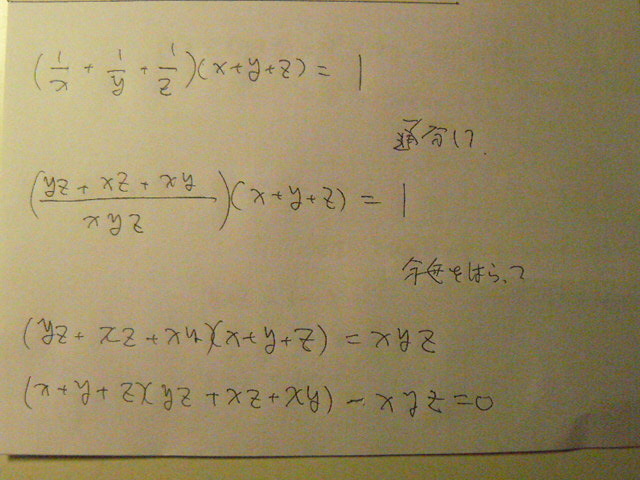 (1/x + 1/y + 1/z)(x+y+z) = 1
通分して
(yz + xz + xy / xyz)(x+y+z) = 1
分母をはらって
(yz + xz + xy)(x+y+z) = xyz
(x+y+z)(yz+xz+xy) - xyz = 0